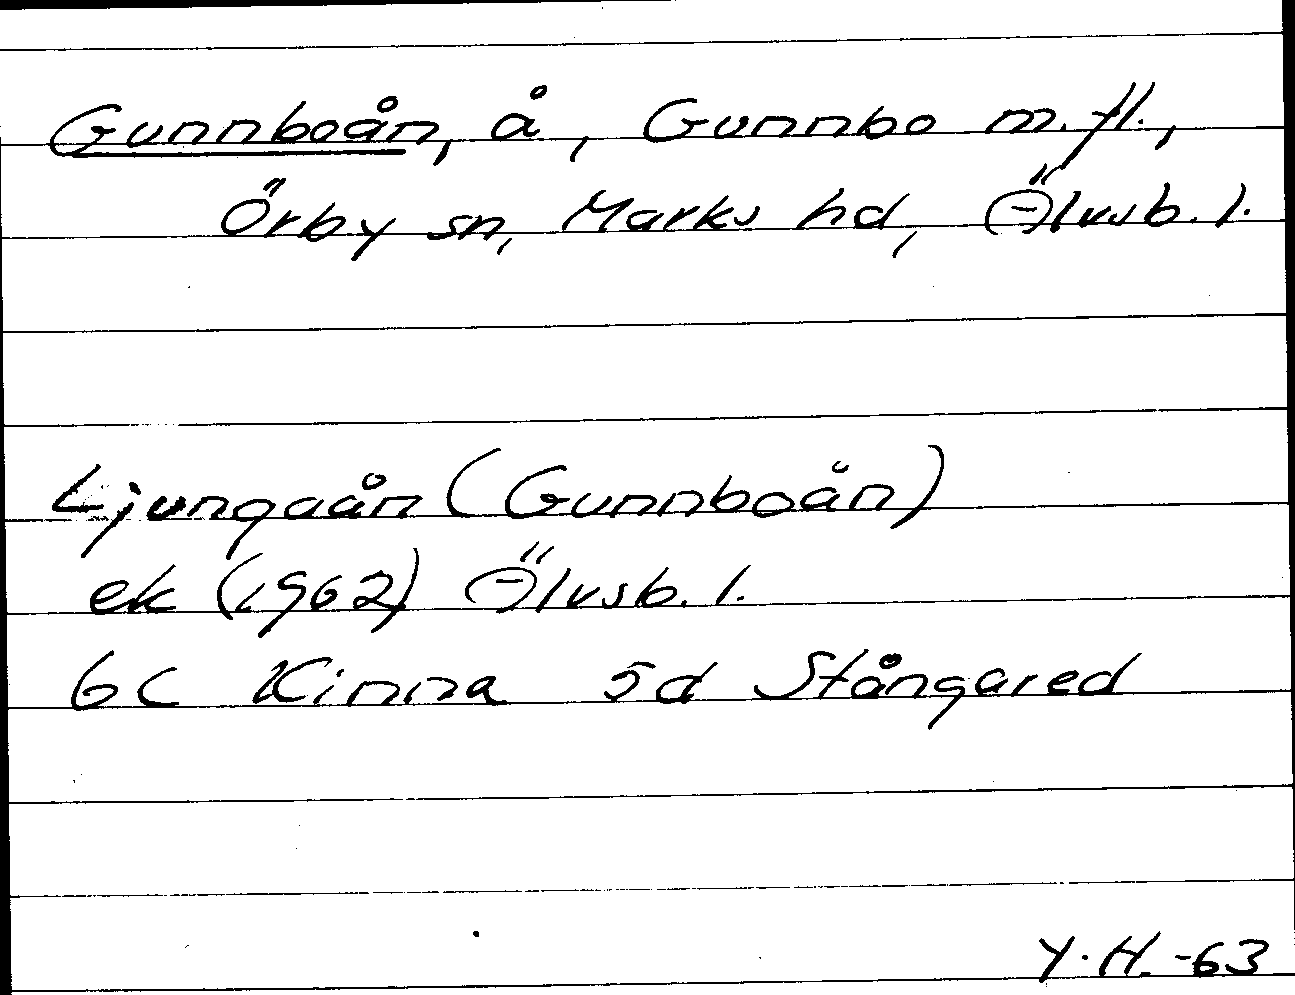 Gunnboån, å, Gunnbo m.fl.,
Örby sn, Marks hd, Älvsb. l.
Ljungaån (Gunnboån)
ek (1962) Älvsb. l.
6C Kinna 5d Stångared
Y.H. -63